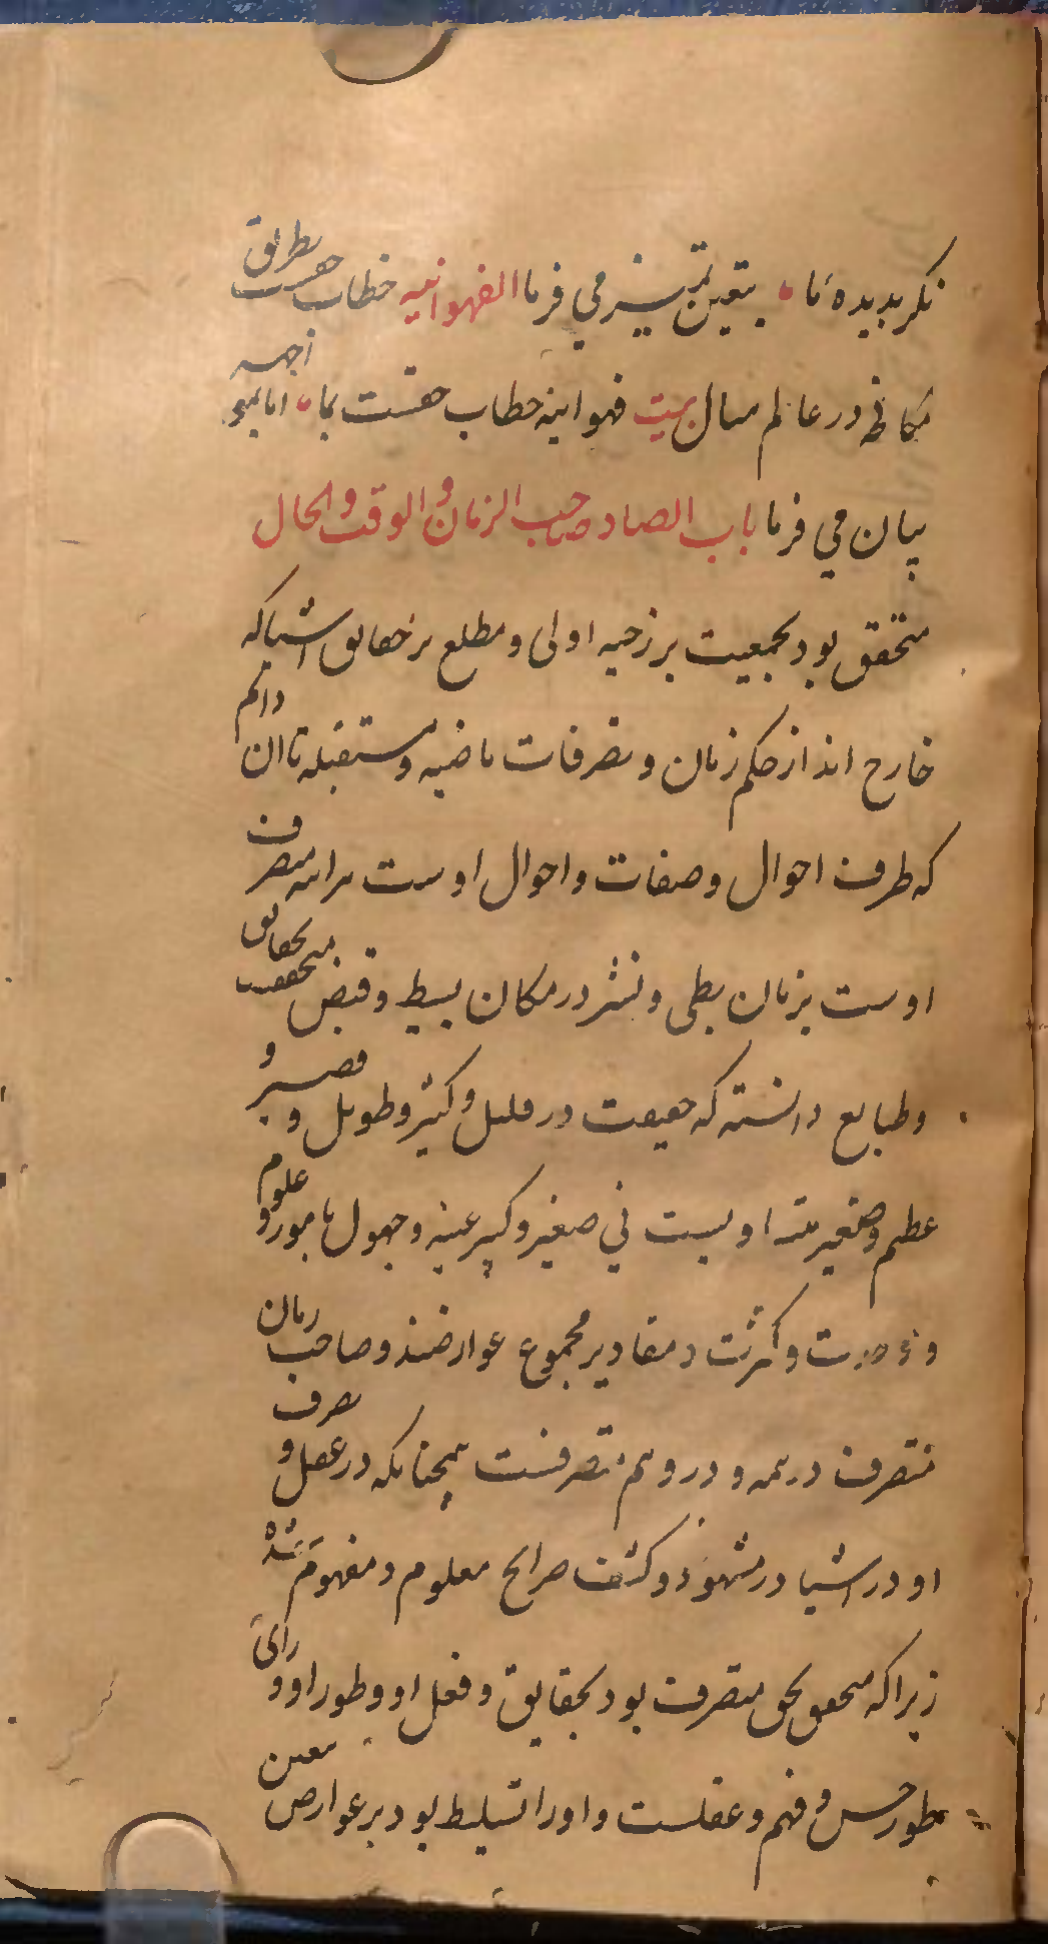 نکر بدیده ما ه بتعین تمیز می فرما الفهوانیه خطاب حقست بطریق
مکافحه در عالم مثال بیت فهوانیه خطاب حقست بما ه اما
بیان می فرما باب الصاد صاحب الزمان و الوقت و الحال
متحقق بود بجمعیت برزخیه اولی و مطلع بر حقایق اشیا که
خارج اند از حکم زمان و تصرفات ماضیه و مستقبله تا ان دائم
که ظرف احوال و صفات و احوال اوست متصرف
اوست بزمان بطی و نشر در مکان ببسط و قبض بحقایق
و طبایع دانسته که حقیقت در قلیل و کثیر و طویل و قصیر و
عظیم و صغیر فی صغیر و کبیر علوم
و وحدت و کثرت و مقادیر مجموع عوارضند و صاحب زمان
متصرف در همه و در وهم متصرفست همچنانکه در عقل و تصرف
او در اشیا در مشهود و کشف صرایح معلوم و مفهوم شد
زیرا که متحقق بحق متصرف بود بحقایق و فعل او و طور او و رای
طور حس و فهم و عقلست و او را تسلیط بود بر عوارض